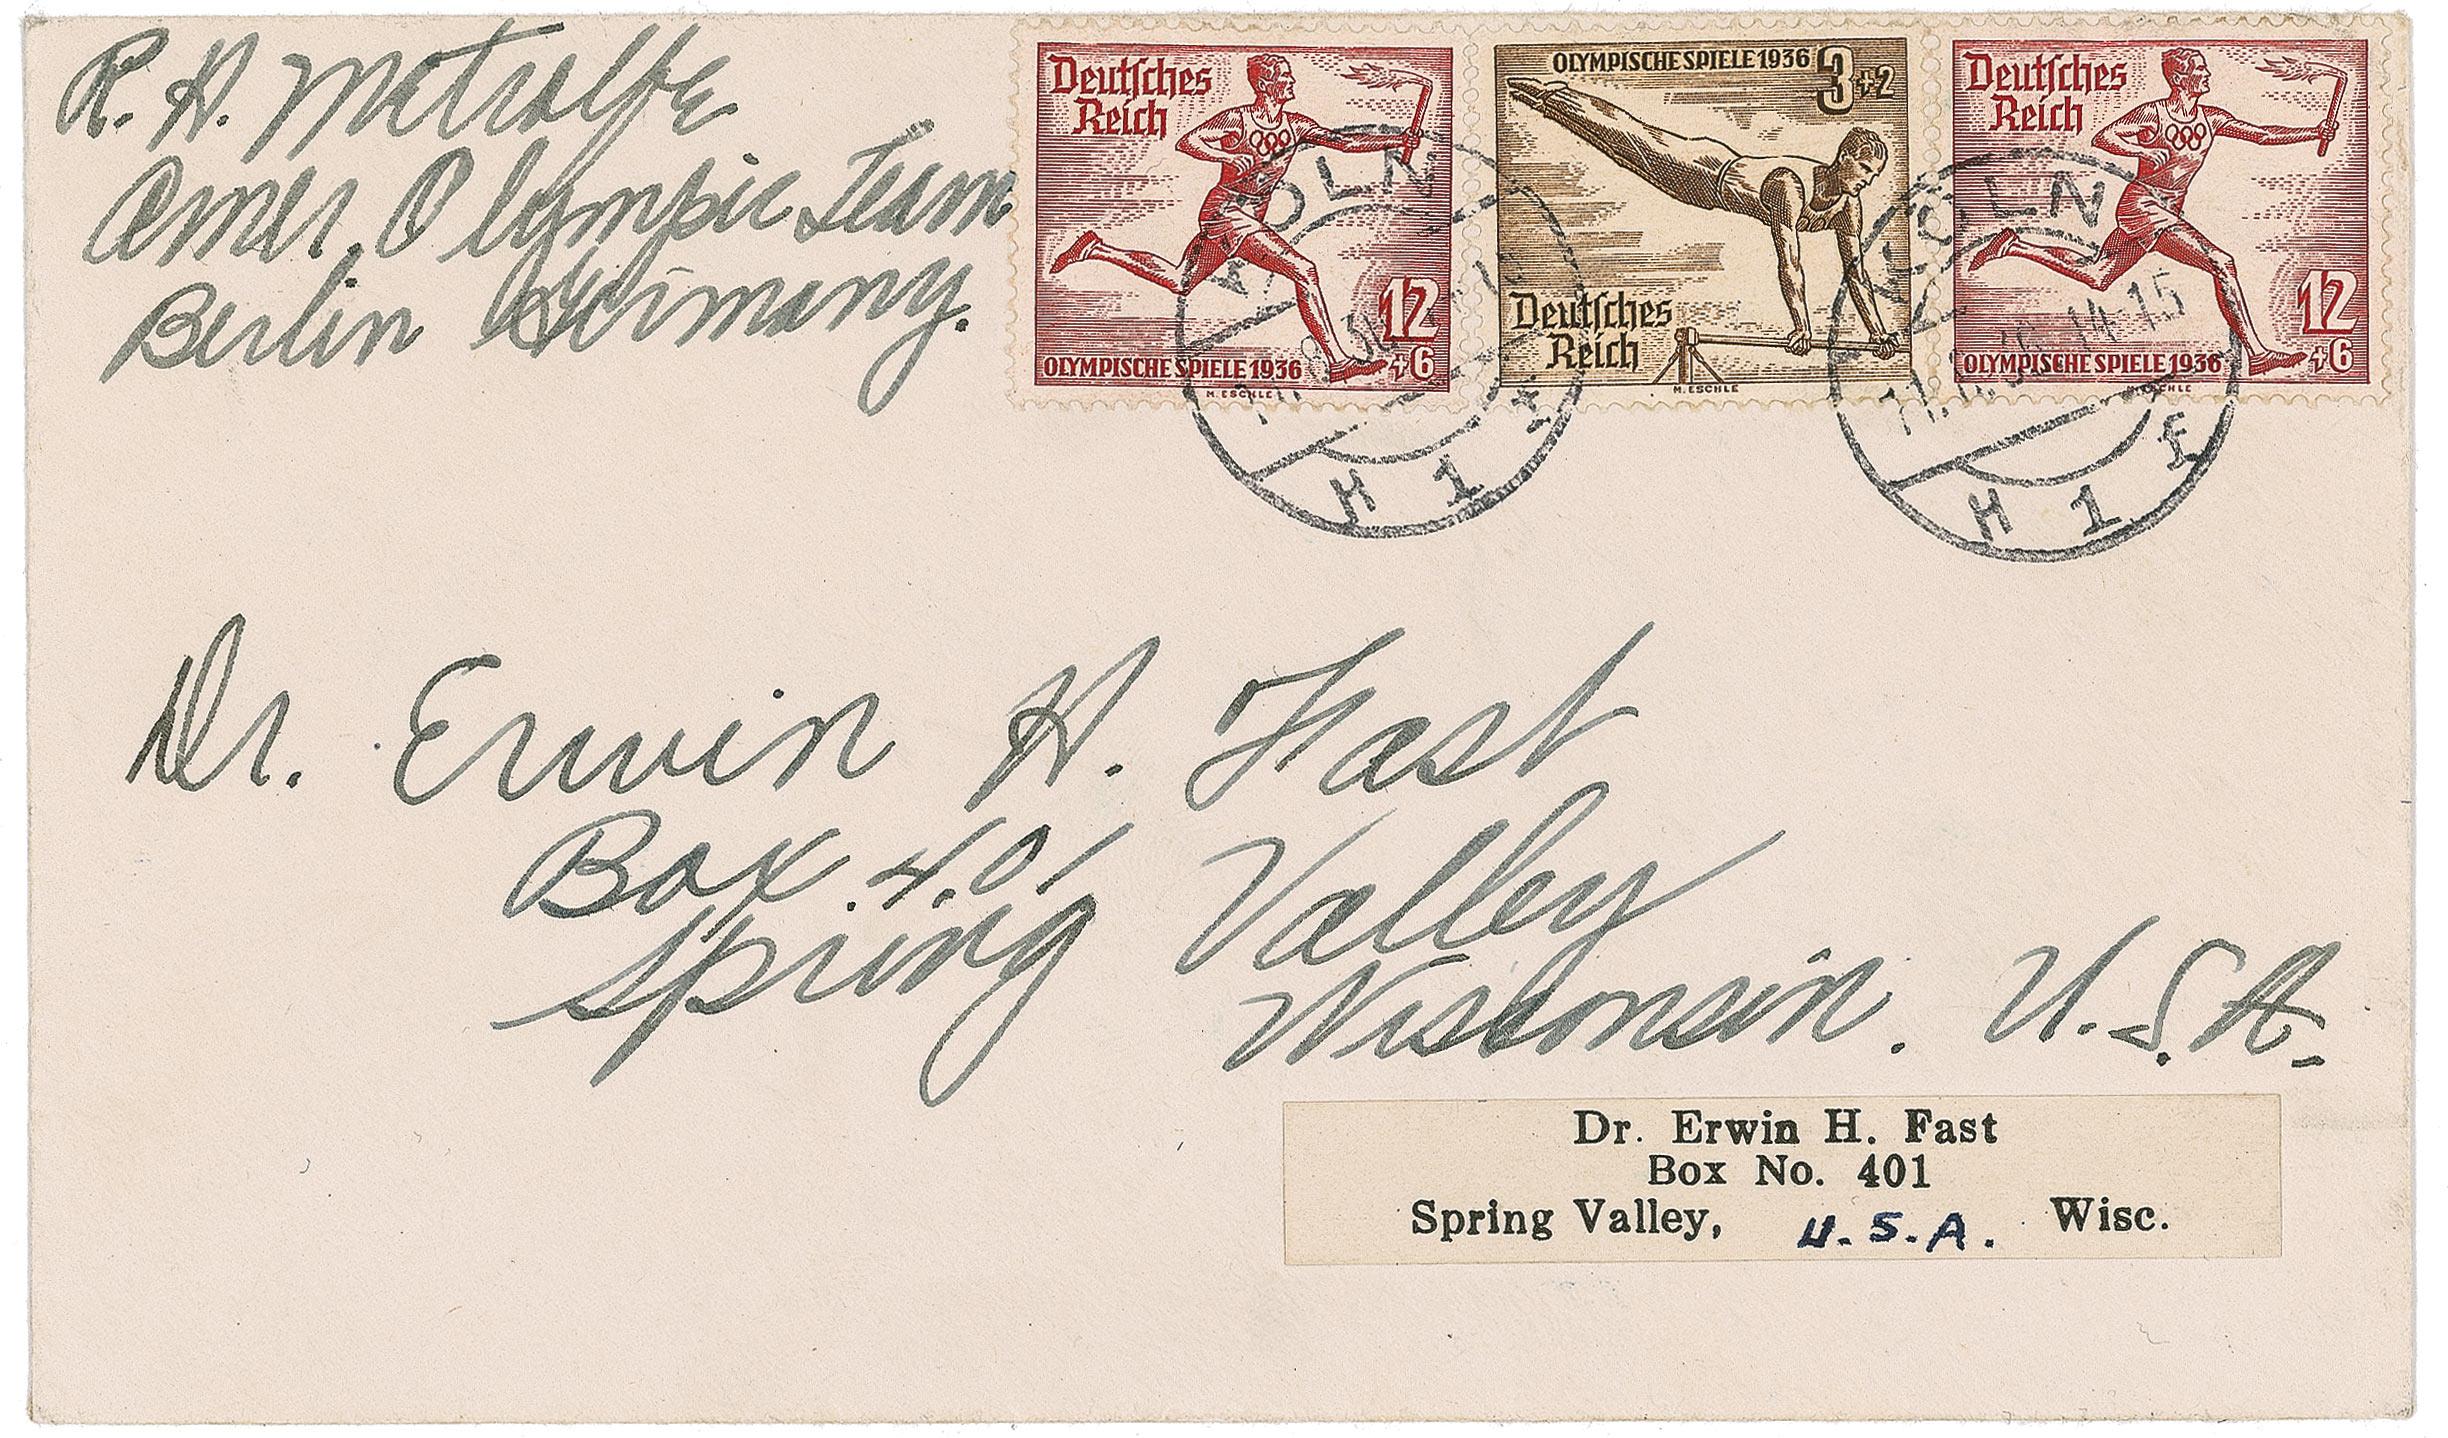 R. H. Metcalfe
Amer. Olympic Team
Berlin Germany.
Deutsches
Reich
12
+6
OLYMPISCHE SPIELE 1936
M. ESCHLE
OLYMPISCHE SPIELE 1936
3+2
Deutsches
Reich
M. ESCHLE
Deutsches
Reich
12
+6
OLYMPISCHE SPIELE 1936
M. ESCHLE
KÖLN
H 1 *
KÖLN
36.14-15
H 1 f
Dr. Erwin H. Fast
Box 401
Spring Valley
Wisconsin. U.S.A.
Dr. Erwin H. Fast
Box No. 401
Spring Valley, U.S.A. Wisc.